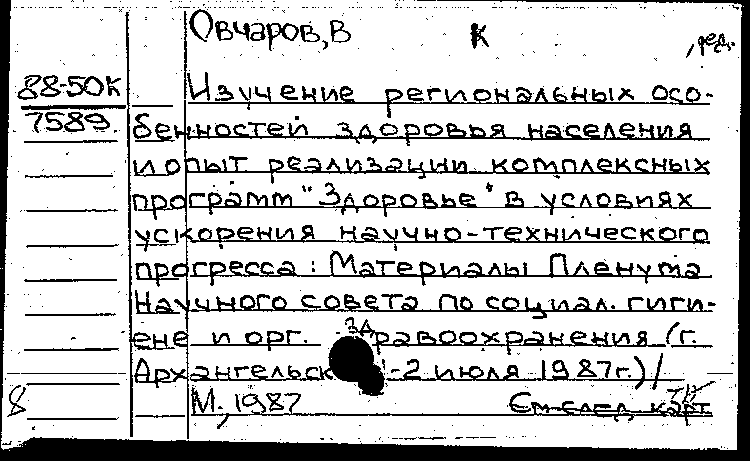 Овчаров, В К , ред.
88-50К
7589.
Изучение региональных осо-
бенностей здоровья населения
и опыт реализации комплексных
программ "Здоровье" в условиях
ускорения научно-технического
прогресса : Материалы Пленума
Научного совета по социал. гиги-
ене и орг. здравоохранения (г.
Архангельск -2 июля 1987г.)/
М., 1987 См. след. карт
8